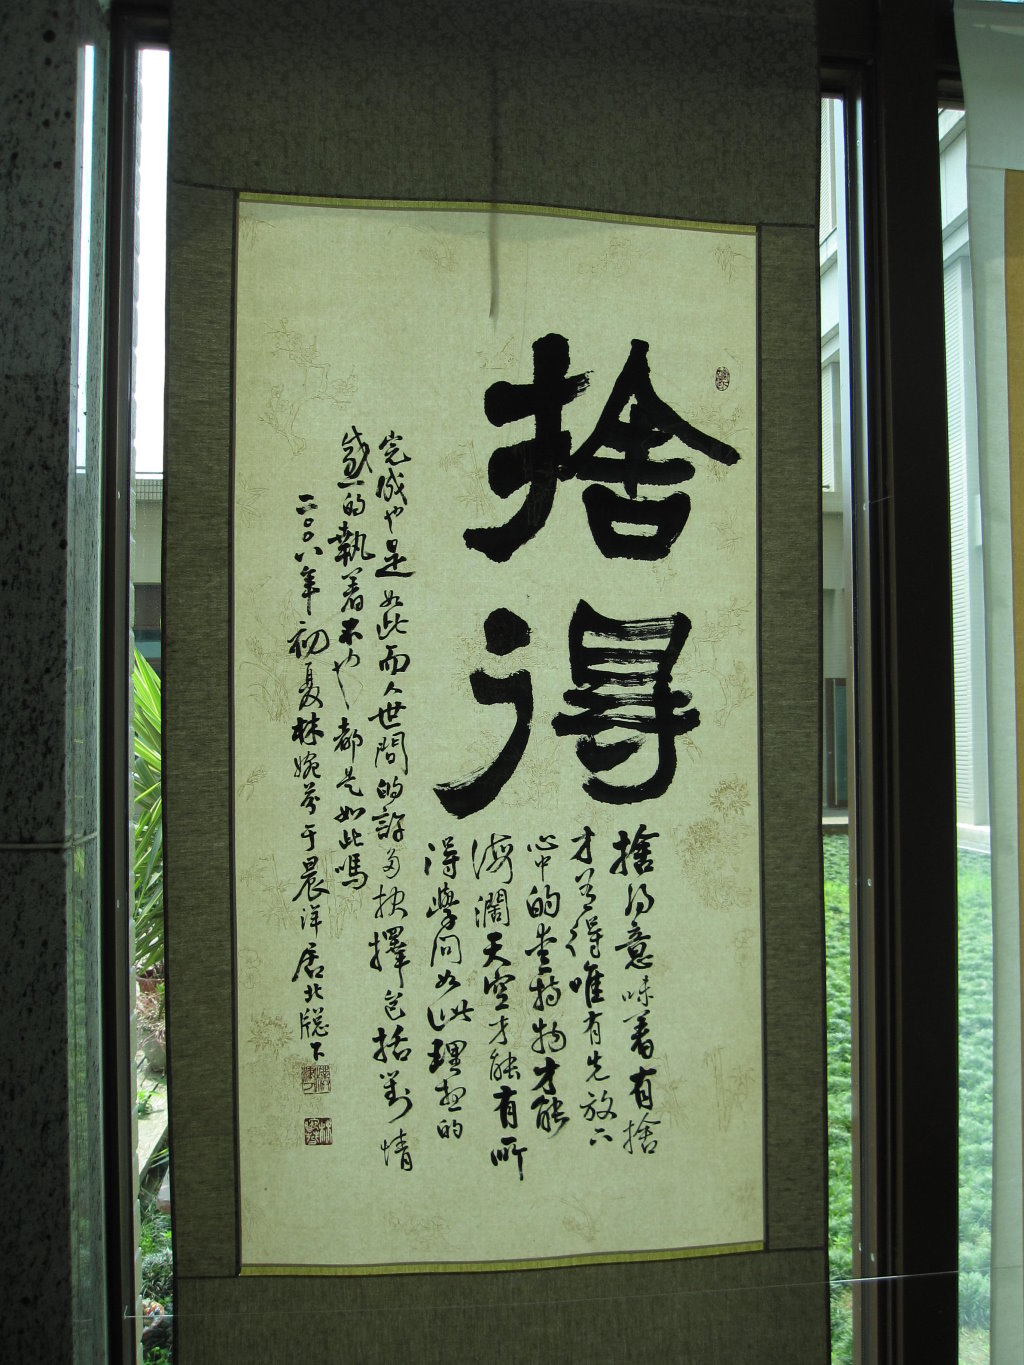 捨得
捨得意味着有捨
才得唯有先放下
心中的物才能
海濶天空才能有所
得學問如此理想的
完成也是如此而人世間的許多抉擇包括對情
感的執着不也都是如此嗎
二〇〇八年初夏林婉芬于晨洋居北牕下